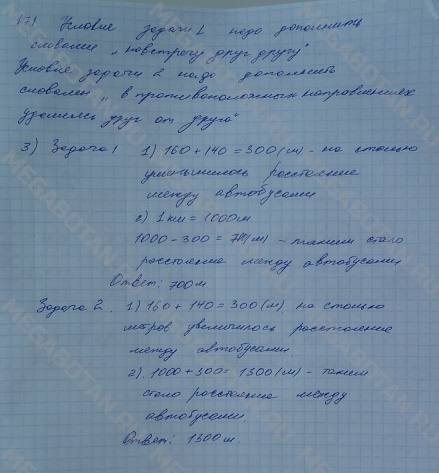 2) Условие задачи 1 надо дополнить
словами „навстречу друг другу"
Условие задачи 2 надо дополнить
словами „в противоположных направлениях
удаляясь друг от друга"
3) Задача 1 1) 160 + 140 = 300 (м) - на столько
уменьшилось расстояние
между автобусами
2) 1 км = 1000 м
1000 - 300 = 700 (м) - таким стало
расстояние между автобусами
Ответ: 700 м
Задача 2. 1) 160 + 140 = 300 (м) на столько
метров увеличилось расстояние
между автобусами
2) 1000 + 300 = 1300 (м) - таким
стало расстояние между
автобусами
Ответ: 1300 м.